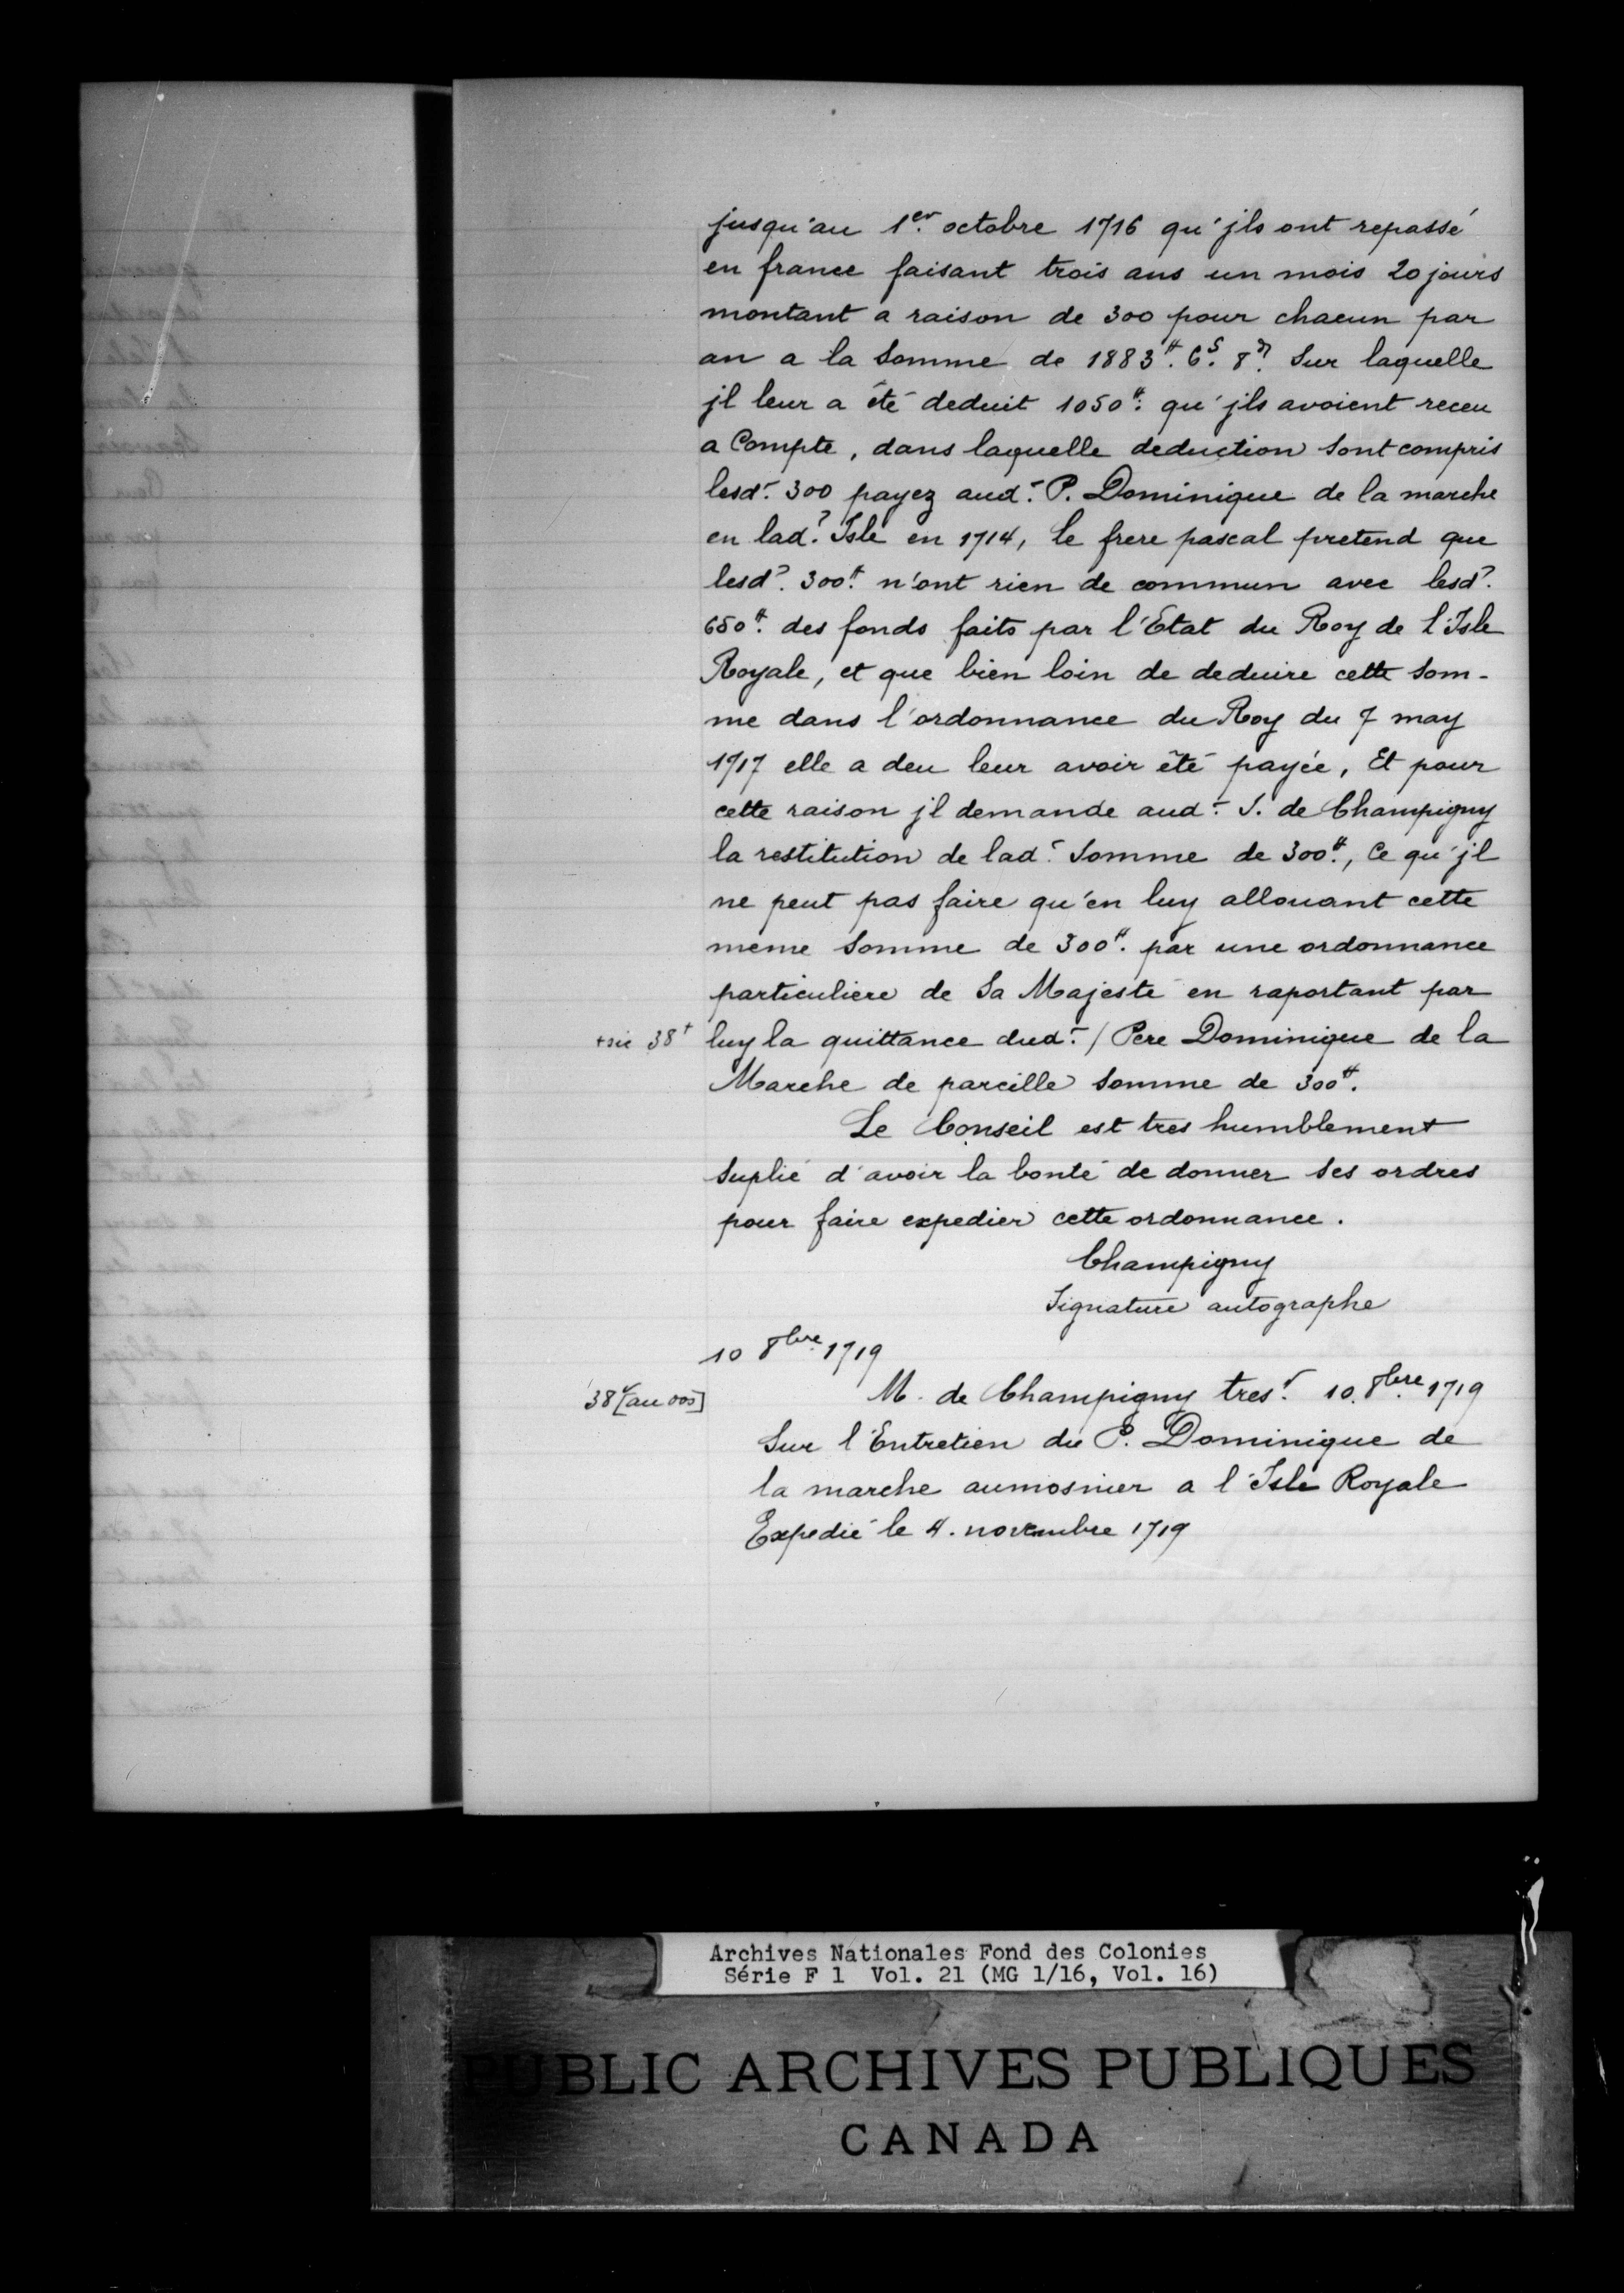 jusqu'au 1er. octobre 1716 qu'jls ont repassé
en france faisant trois ans un mois 20 jours
montant a raison de 300 pour chacun par
an a la Somme de 1883#. 6s. 8d. Sur laquelle
jl leur a été deduit 1050#. qu'jls avoient receu
a Compte, dans laquelle deduction Sont compris
lesd. 300 payez aud. P. Dominique de la marche
en lad. Isle en 1714, le frere pascal pretend que
lesd. 300# n'ont rien de commun avec lesd.
650#. des fonds faits par l'Etat du Roy de l'Isle
Royale, et que bien loin de deduire cette Som-
me dans l'ordonnance du Roy du 7 may
1717 elle a deu leur avoir été payée, Et pour
cette raison jl demande aud. S. de Champigny
la restitution de lad. Somme de 300#., Ce qu'jl
ne peut pas faire qu'en luy allouant cette
meme Somme de 300#. par une ordonnance
particuliere de Sa Majesté en raportant par
+sic 38+ luy la quittance dud. / Pere Dominique de la
Marche de pareille Somme de 300#.
Le Conseil est tres humblement
Suplié d'avoir la bonté de donner Ses ordres
pour faire expedier cette ordonnance.
Champigny
Signature autographe
10 8bre 1719
38v [au dos] M. de Champigny tresr. 10. 8bre 1719
Sur l'Entretien du P. Dominique de
la marche aumosnier a l'Isle Royale
Expedié le 4. novembre 1719
Archives Nationales Fond des Colonies
Série F 1 Vol. 21 (MG 1/16, Vol. 16)
PUBLIC ARCHIVES PUBLIQUES
CANADA